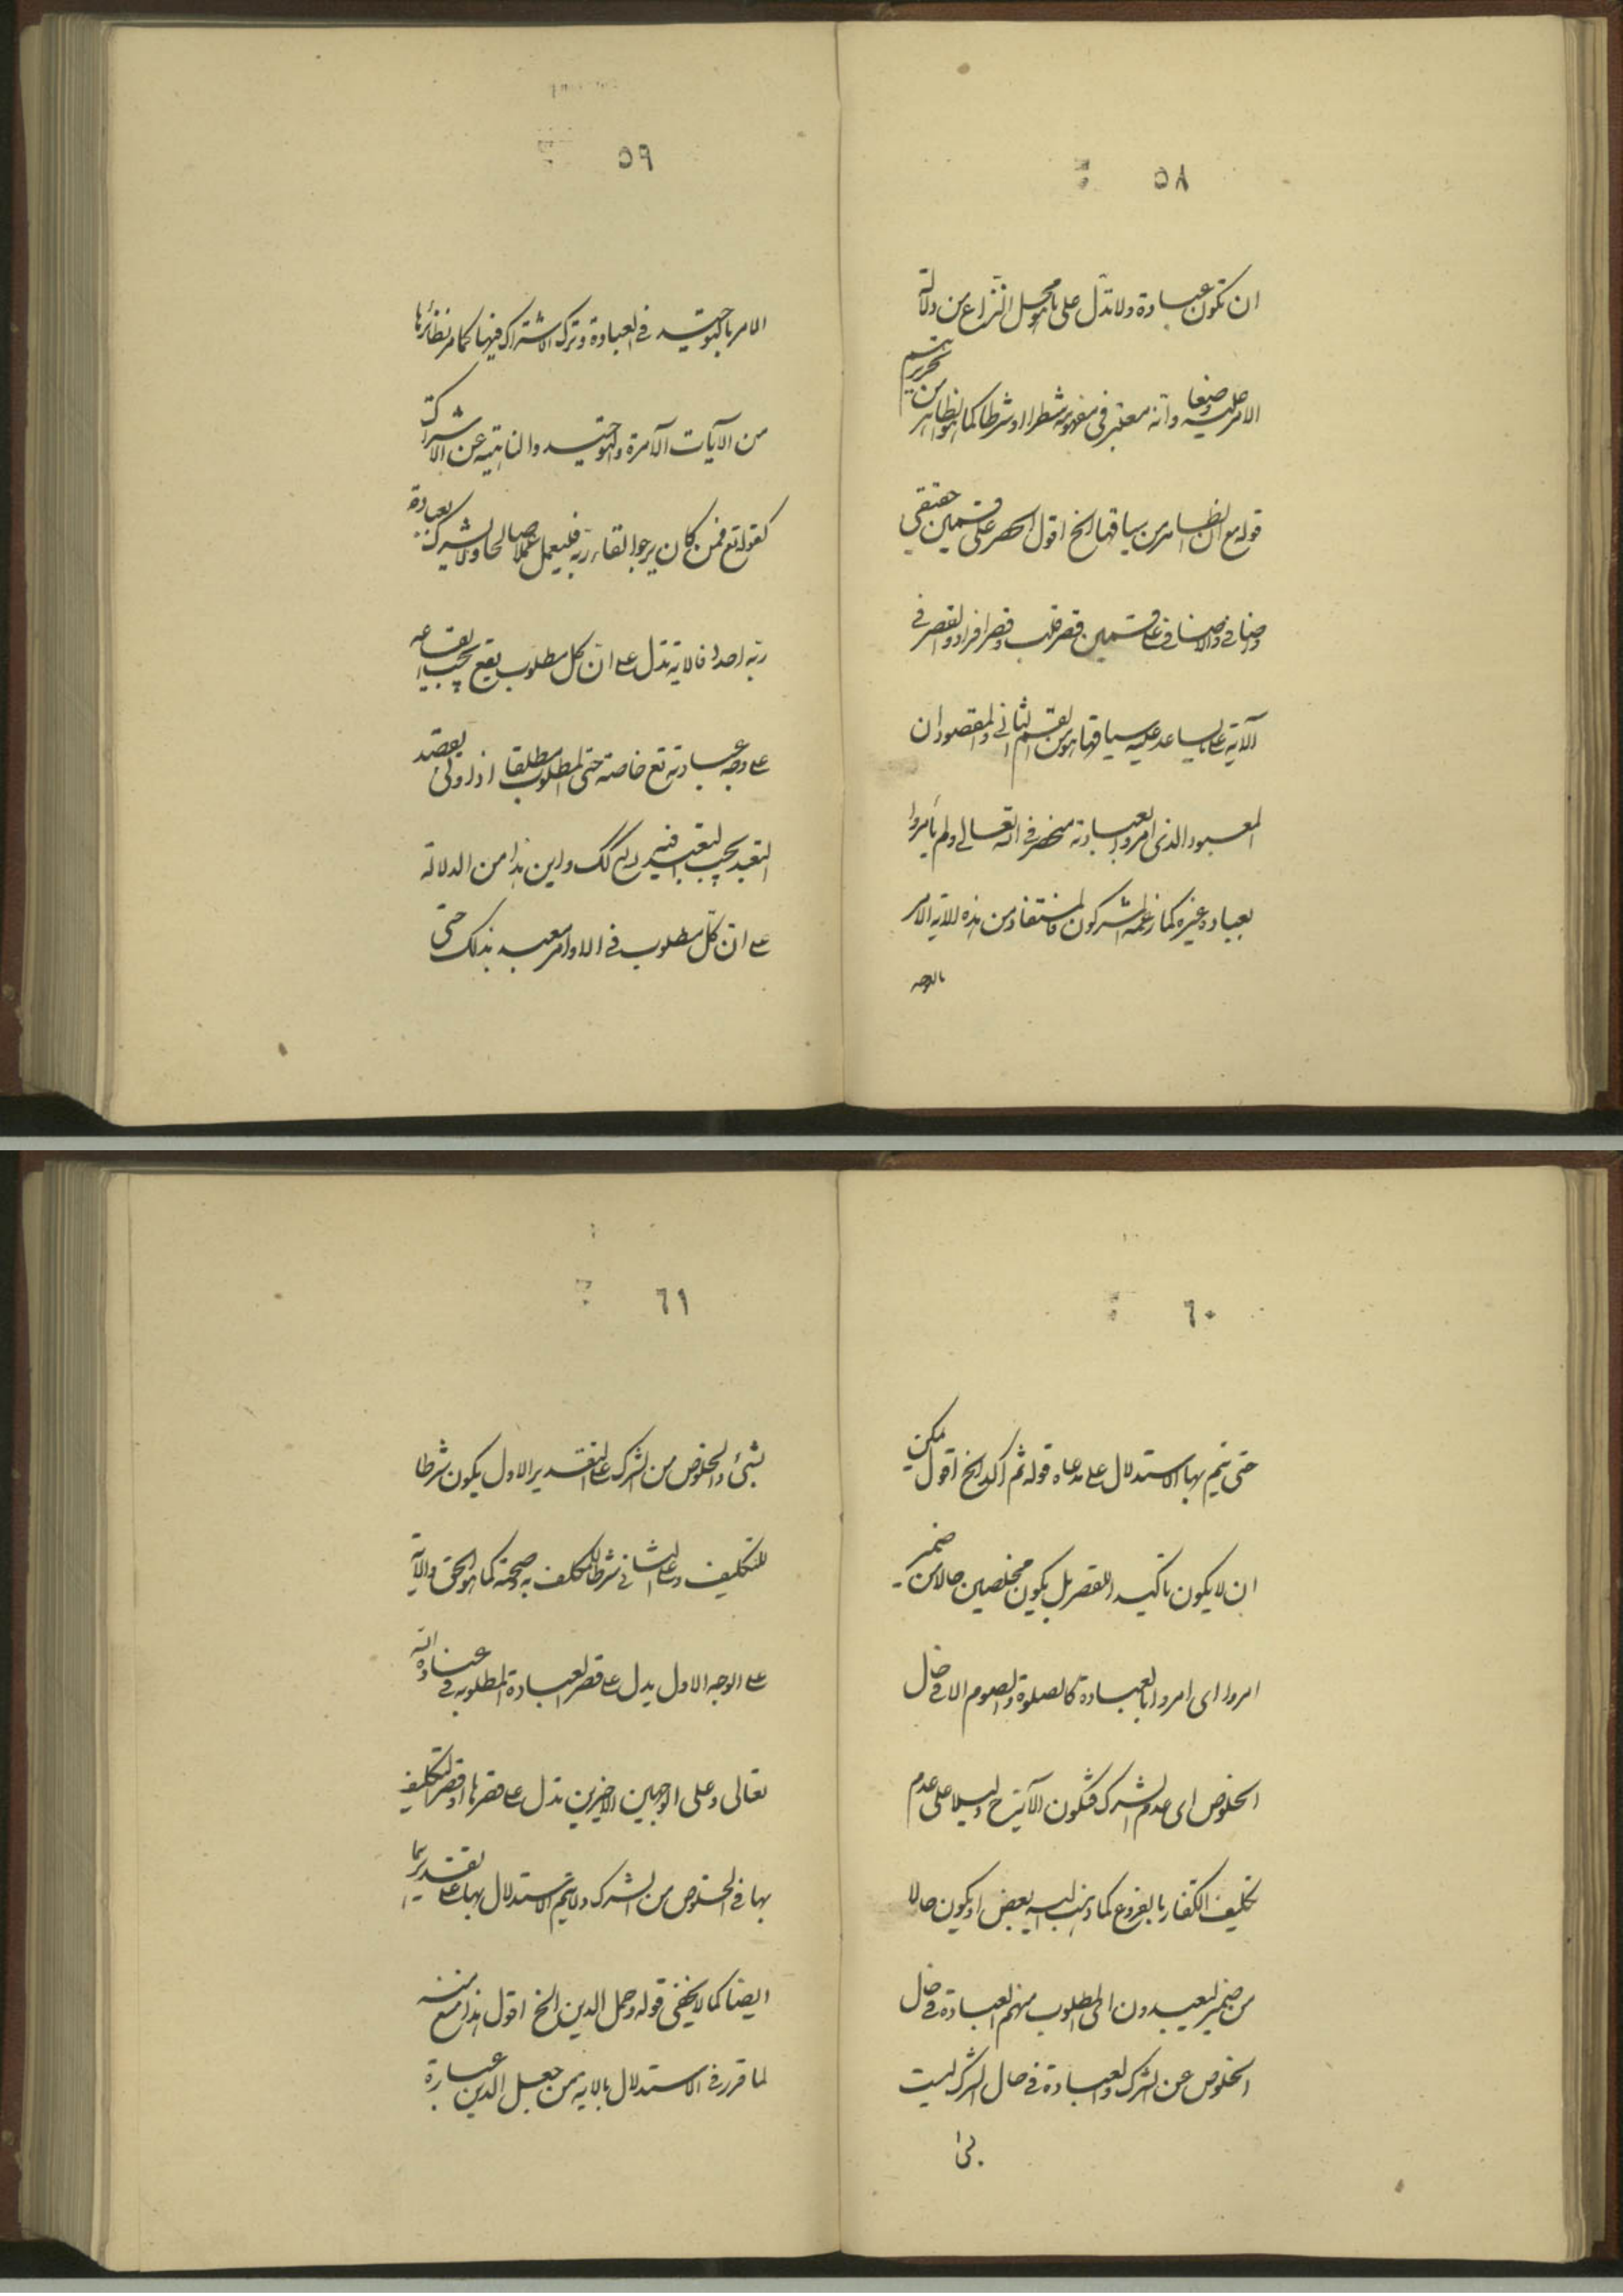 ٥٨
ان تكون عبادة ولا تدل على ما هو محل النزاع من دلالة
الامر عليه وضعا وانه معتبر فى مفهومه شطرا او شرطا كما هو الظاهر من تحريرهم
قوله مع ان الظاهر من سياقها الخ اقول الحصر على قسمين حقيقي
واضافي والاضافي على قسمين قصر قلب وقصر افراد والقصر في
الآية على ما يساعد عليه سياقها هو من القسم الثاني والمقصود ان
المعبود الذى امروا بعبادته منحصر في الله تعالى ولم يأمروا
بعبادة غيره كما زعمه المشركون فالمستفاد من هذه الآية الامر
بالتوحيد
٥٩
الامر بالتوحيد في العبادة وترك الاشتراك فيها كما مر نظائرها
من الآيات الآمرة بالتوحيد والناهية عن الاشراك
كقوله تع فمن كان يرجوا لقاء ربه فليعمل عملا صالحا ولا يشرك بعبادة
ربه احدا فالاية تدل على ان كل مطلوب يقع يجب ايقاعه
على وجه عبادته تع خاصة حتى المطلوب مطلقا اذا ولى بقصد
التعبد يجب التعبد فيه كك واين هذا من الدلالة
على ان كل مطلوب في الاوامر معبد بذلك حتى
٦٠
حتى يتم بها الاستدلال على مدعاه قوله ثم اكد الخ اقول يمكن
ان لا يكون تاكيد اللقصر بل يكون مخلصين حالا من ضمير
امروا اى امروا بالعبادة كالصلوة والصوم الا في حال
الخلوص اى عدم الشرك فتكون الآية ح دليلا على عدم
تكليف الكفار بالفروع كما ذهب اليه بعض او يكون حالا
من ضمير ليعبدون اى المطلوب منهم العبادة في حال
الخلوص عن الشرك والعبادة في حال الشرك ليست
٦١
بشئ والخلوص من الشرك على التقدير الاول يكون شرطا
للتكليف وعلى الثاني شرطا للمكلف به وصحته كما هو الحق والآية
على الوجه الاول يدل على قصر العبادة المطلوبة في عبادة الله
تعالى وعلى الوجهين الاخيرين تدل على قصرها او قصر التكليف
بها في الخلوص من الشرك ولا يتم الاستدلال بها على تقديرهما
ايضا كما لا يخفى قوله وحمل الدين الخ اقول هذا منع منه
لما قرر في الاستدلال بالاية من جعل الدين عبارة